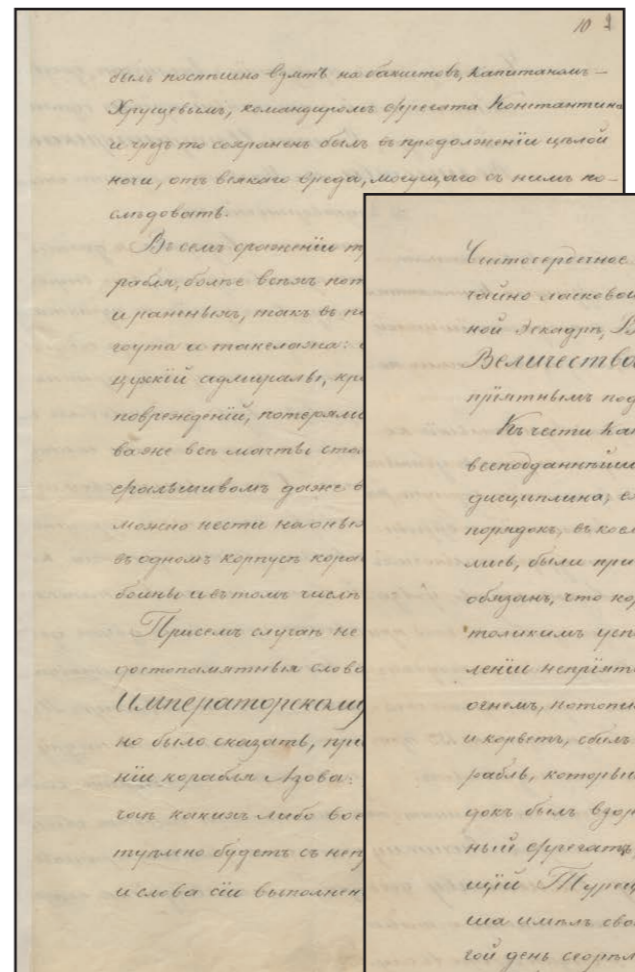 10
былъ поспѣшно взятъ на бакштовъ, Капитаномъ –
Хрущевымъ, командиромъ фрегата Константина
и чрезъ то сохраненъ былъ въ продолженіи цѣлой
ночи, отъ всякаго вреда, могущаго съ нимъ по-
слѣдовать.
Въ семъ сраженіи
рабля, болѣе всѣхъ пот
и раненыхъ, такъ въ
гоута и такелажа:
цузскій адмиралы, кро
поврежденій, потеряли
важе всѣ мачты
фальшивомъ даже
можно нести на оныхъ
въ одномъ корпусѣ кора
боины и въ томъ числѣ
При семъ случаѣ не
достопамятныя слова
Императорскому
но было сказать, при
ніи корабля Азова:
чаѣ какихъ либо вое
туплено будетъ съ неп
и слова сіи выполнен
Чистосердечное
чайно ласковой
ной Эскадрѣ,
Величества
пріятнымъ под
Къ чести Кап
всеподданнѣйше
дисциплина;
порядокъ, въ коем
лись, были при
обязанъ, что кор
толикимъ успѣ
леніи непріят
огнемъ, потопи
и корветъ, сбилъ
рабль, который
докъ былъ взор
ный фрегатъ
щій Турец
ша имѣлъ сво
гой день сгорѣл